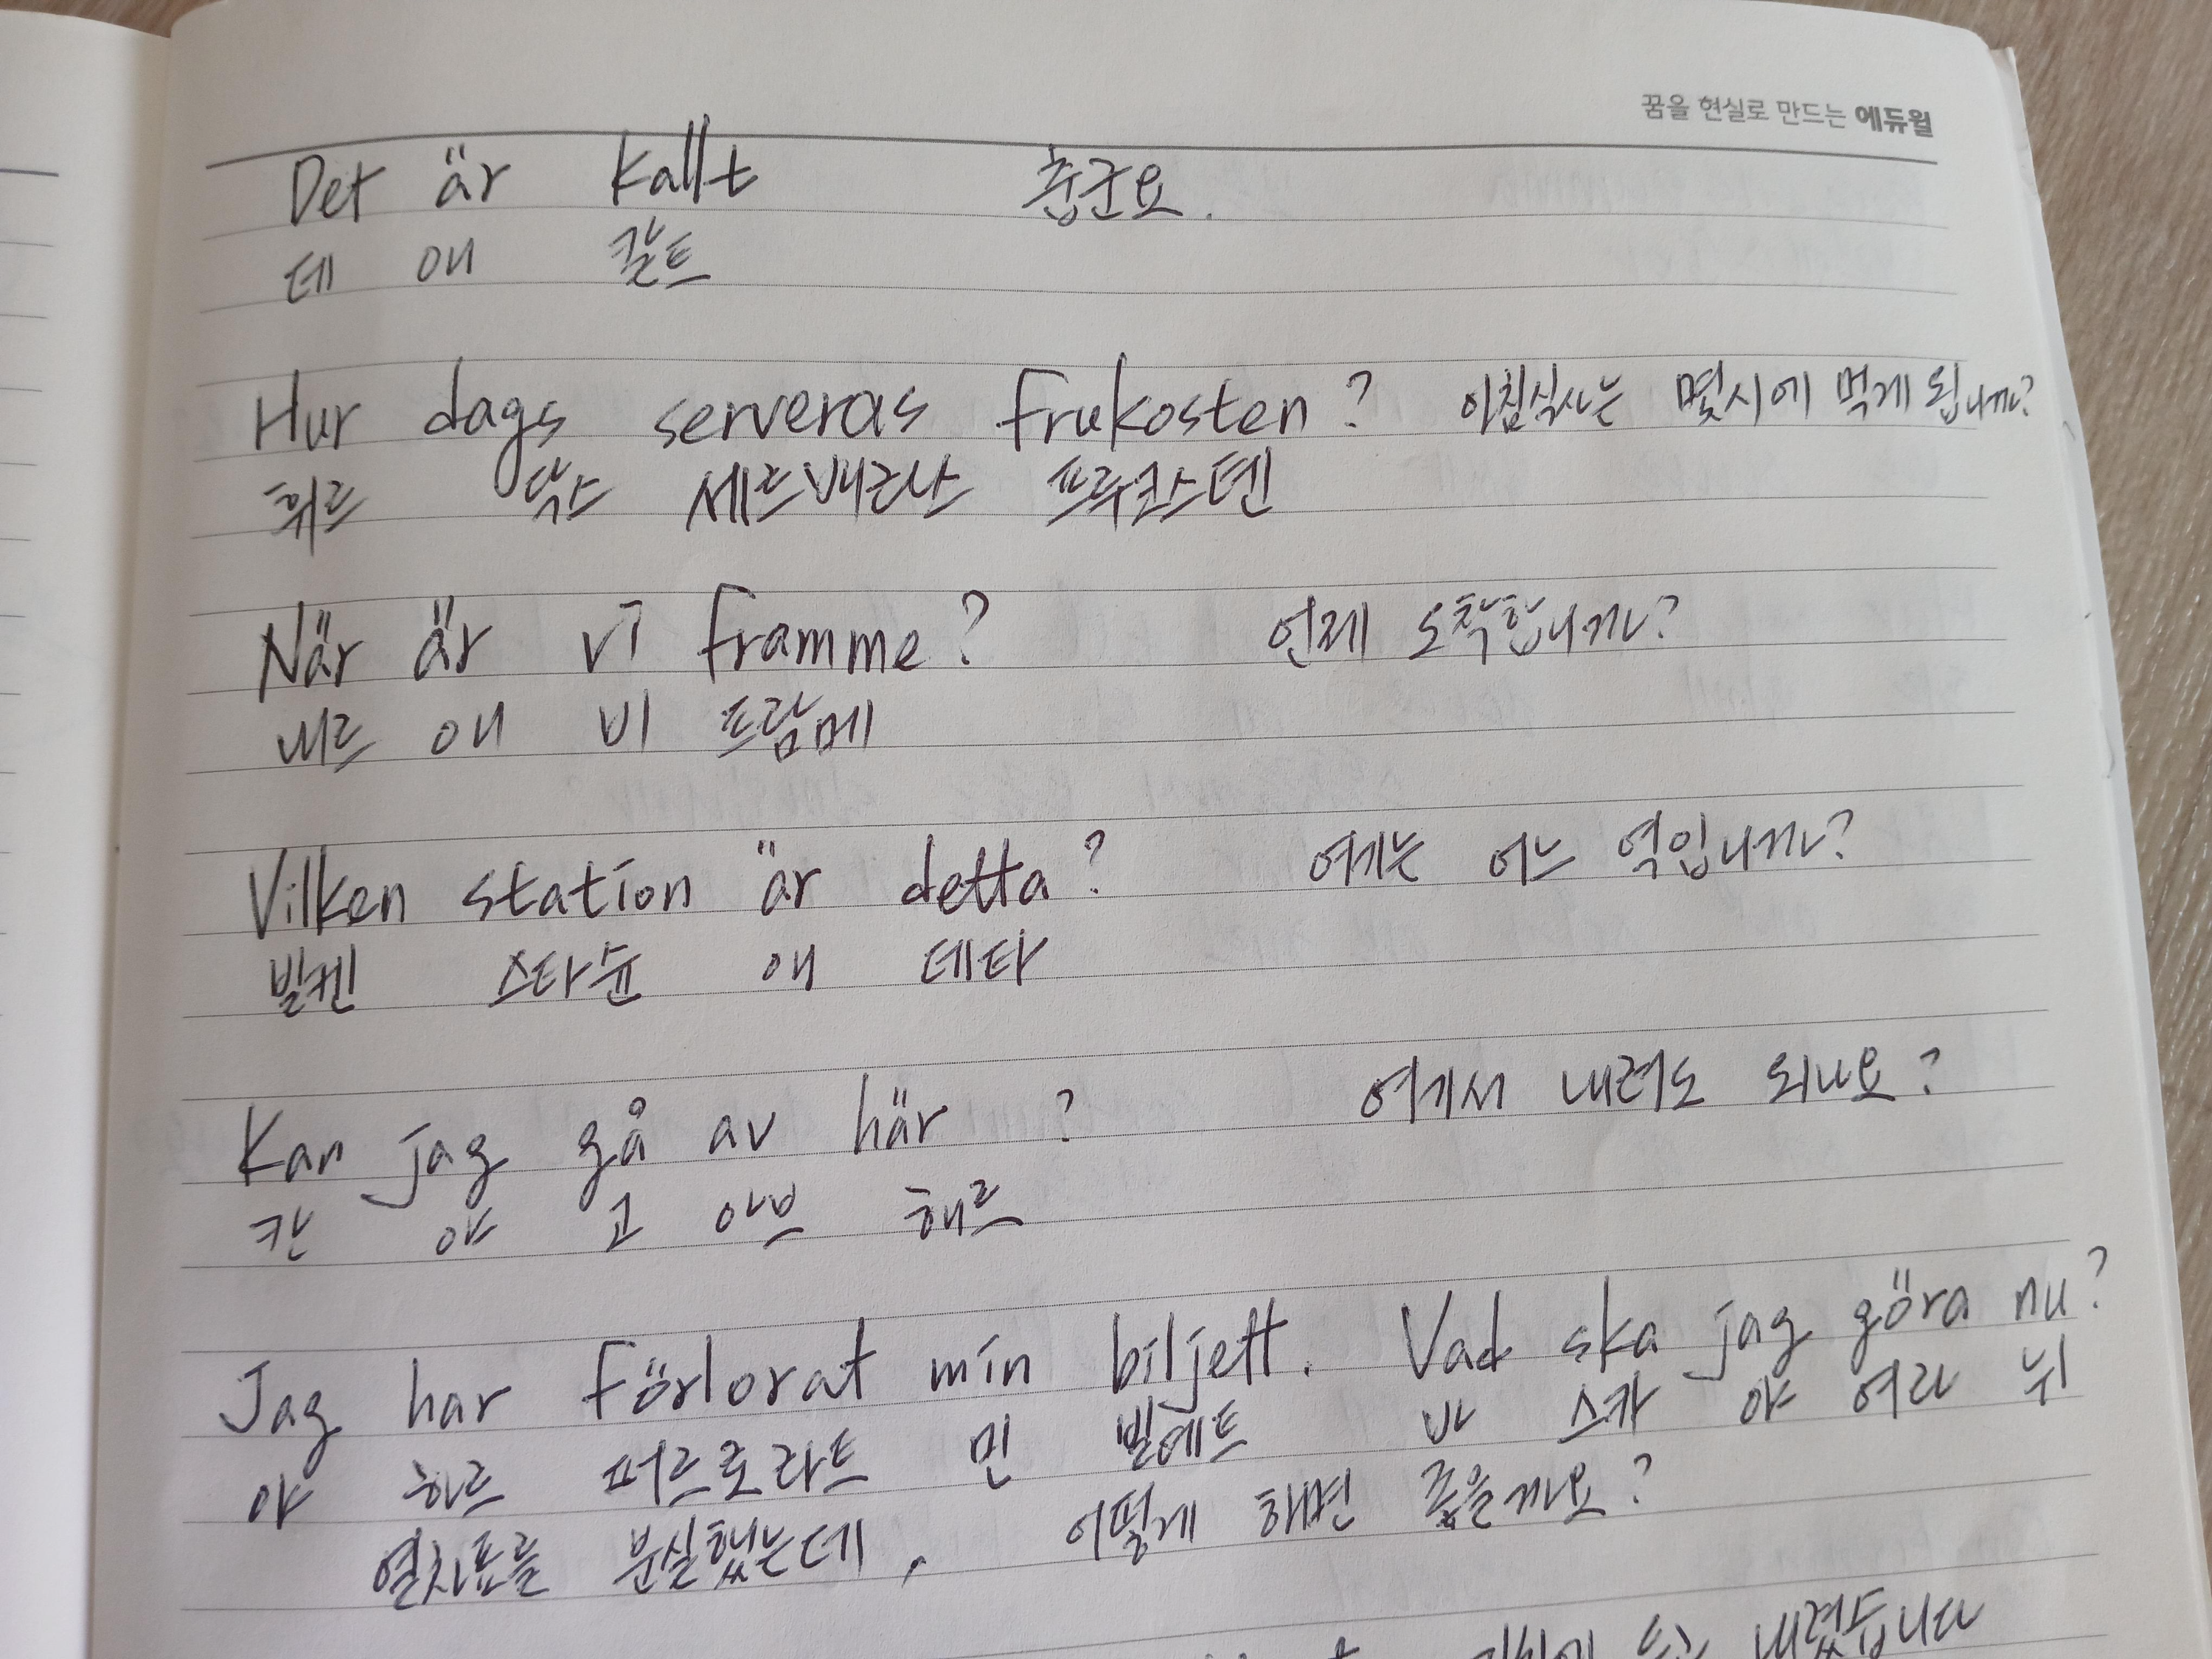 꿈을 현실로 만드는 에듀윌
Det är kallt 춥군요.
데 애 칼트
Hur dags serveras frukosten? 아침식사는 몇시에 먹게 됩니까?
휘르 닥스 세르베라스 프루코스텐
När är vi framme? 언제 도착합니까?
내르 애 비 프람메
Vilken station är detta? 여기는 어느 역입니까?
빌켄 스타슌 애 데타
Kan jag gå av här ? 여기서 내려도 되나요?
칸 야 고 아브 해르
Jag har förlorat min biljett. Vad ska jag göra nu?
야 하르 퍼르로라트 민 빌예트 바 스카 야 여라 뉘
열차표를 분실했는데, 어떻게 해면 좋을까요?
내렸습니다